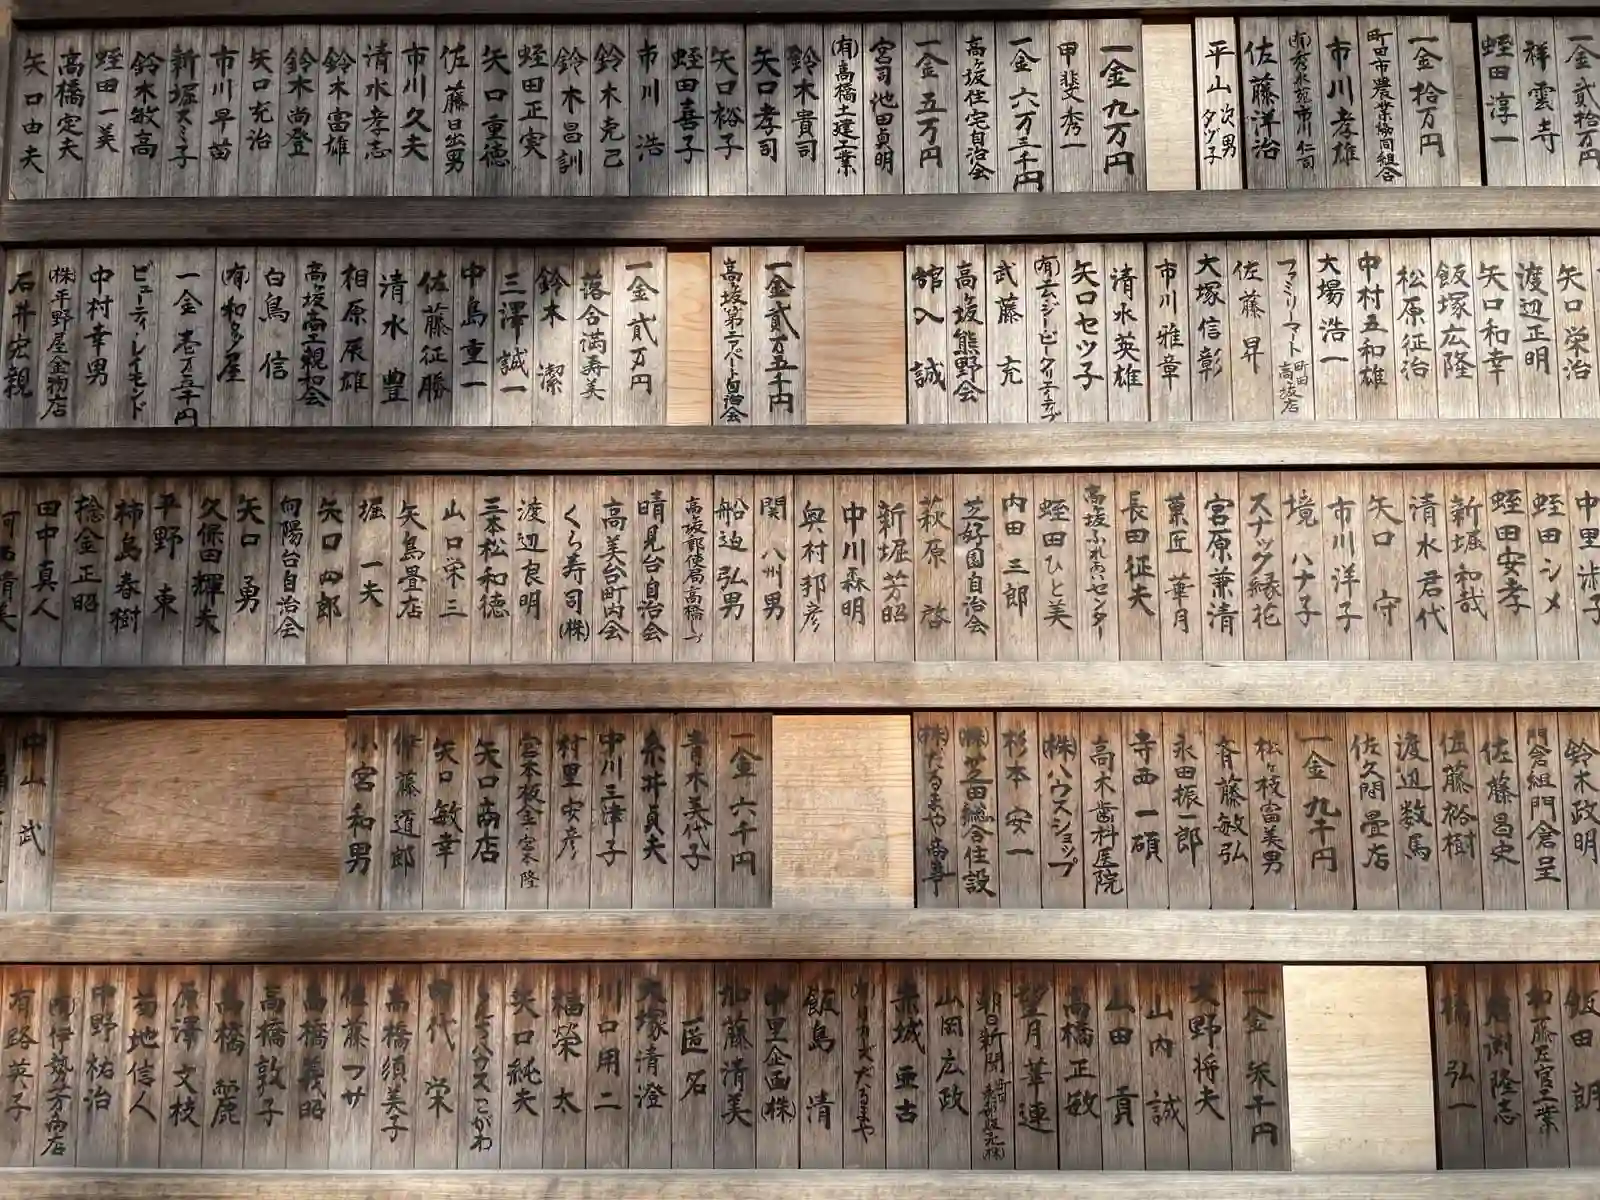 一金貳拾万円
祥雲寺
蛭田淳一
一金拾万円
町田市農業協同組合
市川孝雄
佐藤洋治
平山次男
タヅ子
一金九万円
甲斐秀一
一金六万三千円
高ヶ坂住宅自治会
一金五万円
宮司池田貞明
(有)高橋土建工業
鈴木貴司
矢口孝司
矢口裕子
蛭田喜子
市川浩
鈴木克己
鈴木昌訓
蛭田正実
矢口重徳
佐藤日出男
市川久夫
清水孝志
鈴木富雄
鈴木尚登
矢口充治
市川早苗
新堀スミ子
鈴木敏高
蛭田一美
高橋定夫
矢口由夫
矢口栄治
渡辺正明
矢口和幸
飯塚広隆
松原征治
中村五和雄
大場浩一
ファミリーマート町田高坂店
佐藤昇
大塚信彰
市川雅章
清水英雄
矢口セツ子
武藤充
高ヶ坂熊野会
舘入誠
一金貳万五千円
高ヶ坂第二アパート自治会
一金貳万円
落合満寿美
鈴木潔
三澤誠一
中島重一
佐藤征勝
清水豊
相原辰雄
白鳥信
(有)和多屋
一金壱万五千円
ビューティレイモンド
中村幸男
(株)平野屋金物店
石井宏親
中里淑子
蛭田シメ
蛭田安孝
新堀和哉
清水君代
矢口守
市川洋子
境ハナ子
スナック縁花
宮原兼清
菓匠華月
長田征夫
高ヶ坂ふれあいセンター
蛭田ひと美
内田三郎
芝好園自治会
萩原啓
新堀芳昭
中川森明
奥村邦彦
関八州男
船迫弘男
晴見台自治会
高美台町内会
くら寿司(株)
渡辺良明
三本松和徳
山口栄三
矢島畳店
堀一夫
矢口四郎
向陽台自治会
矢口勇
久保田輝夫
平野東
柿島春樹
捻金正昭
田中真人
鈴木政明
門倉組門倉呈
佐藤昌史
伍藤裕樹
渡辺数馬
佐久間畳店
一金九千円
松ヶ枝富美男
斉藤敏弘
永田振一郎
寺西一碩
高木歯科医院
(株)ハウスショップ
杉本安一
(株)芝田総合住設
一金六千円
青木美代子
糸井貞夫
中川三津子
村里安彦
宮本板金宮本隆
矢口商店
矢口敏幸
伊藤道郎
小宮和男
中山武
飯田朗
橋弘一
大野将夫
山内誠
山田貢
高橋正敏
望月華連
山岡広政
赤城亜古
飯島清
中里企画(株)
加藤清美
匿名
大塚清澄
川口用二
福榮太
矢口純夫
田代栄
高橋須美子
佐藤フサ
高橋義昭
高橋敦子
高橋麗
原澤文枝
菊地信人
中野祐治
有路英子